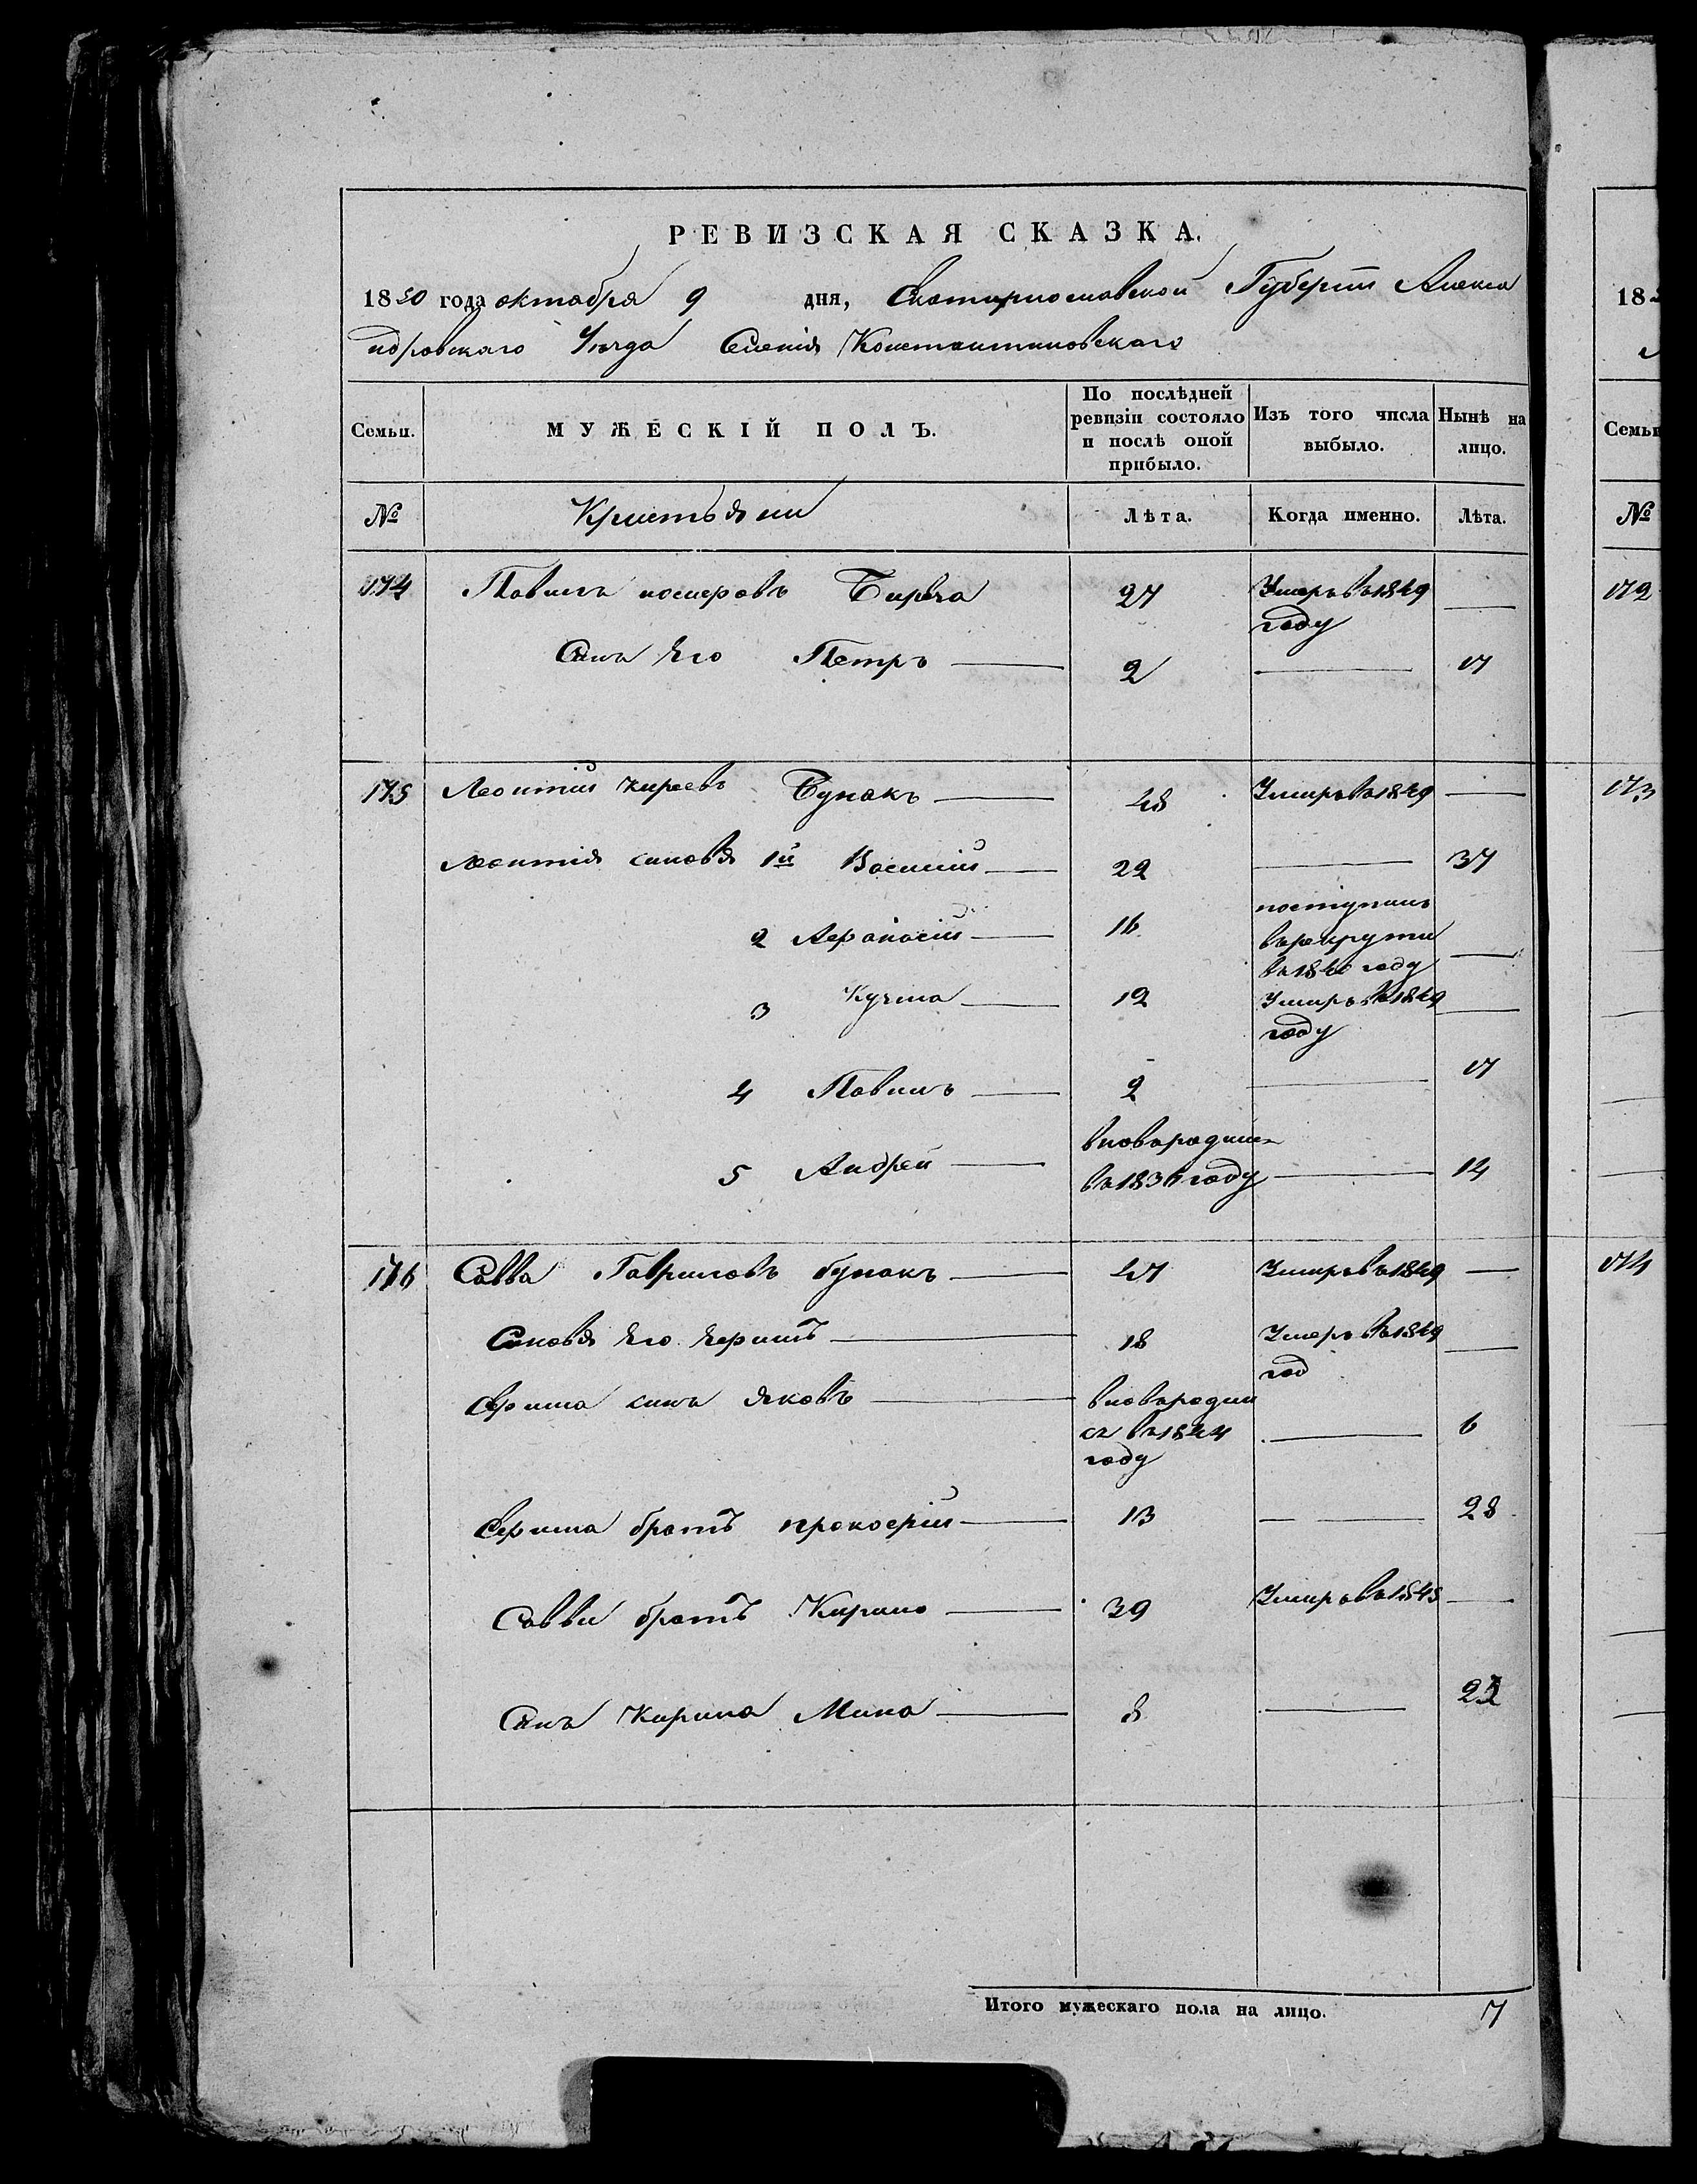 РЕВИЗСКАЯ СКАЗКА.
1850 года октября 9 дня, Екатеринославской Губерніи Алекса
ндровскаго Уѣзда Селенія Константиновскаго
Семьи.
МУЖЕСКІЙ ПОЛЪ.
По послѣдней ревизіи состояло и послѣ оной прибыло.
Изъ того числа выбыло.
Нынѣ на лицо.
№
Лѣта.
Когда именно.
Лѣта.
174 Павилъ 27 Умеръ въ 1849 —
году
Синъ Его Петръ — 2 — 17
175 Леонтій Киреевъ Бунакъ — 48 Умиръ въ 1849 —
Леонтія синовья 1й Василій — 22 — 37
2 Афанасій — 16 поступилъ
в рекрути
въ 1840 году —
3 Кузма — 12 Умиръ въ 1849 —
году
4 Павилъ — 2 — 17
5 Андрей — вноворадил
въ 1836 году — 14
176 Савва Гавриловъ бунакъ — 47 Умиръ въ 1849 —
Синовья Его Ефимъ — 18 Умеръ въ 1849 —
год
Ефима синъ Яковъ — вноварадил
ся въ 1844 — 6
году
Ефима братъ прокофій — 13 — 28
Савви братъ Кирило — 39 Умиръ въ 1845 —
Синъ Кирила Мина — 8 — 23
Итого мужескаго пола на лицо. 7
18
Семьи
№
172
173
174